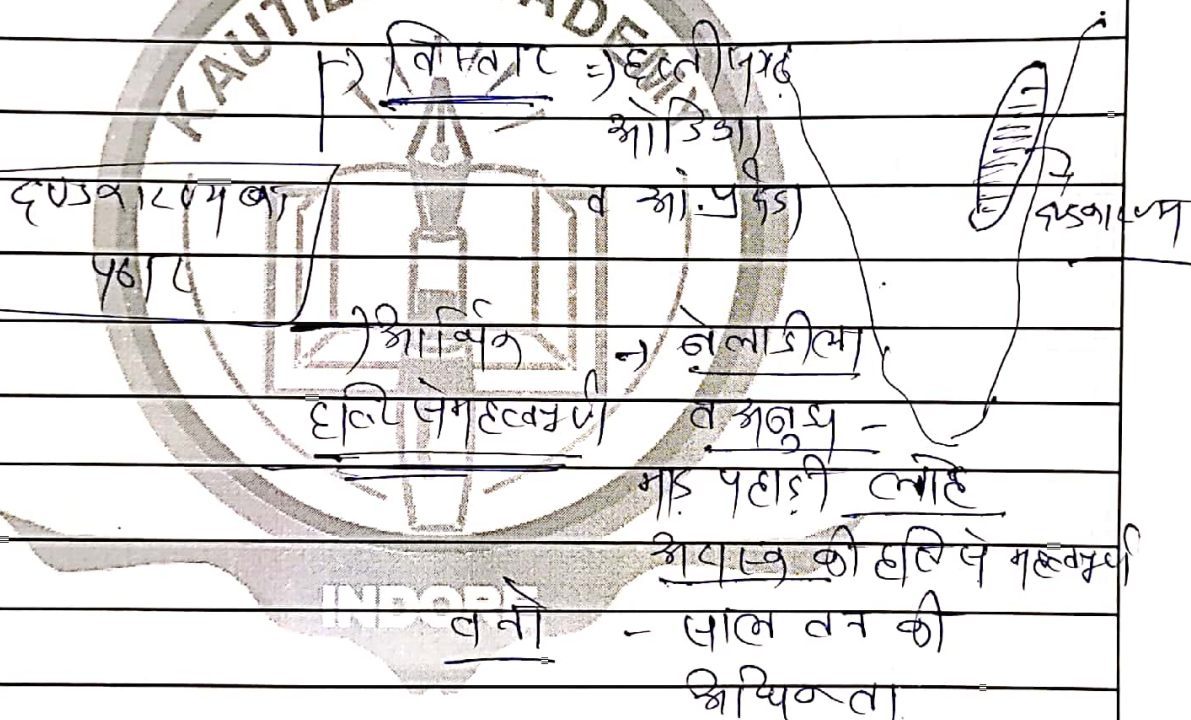 KAUTILYA ACADEMY
→) विस्तार =) छत्तीसगढ़
ओडिशा
व आं.प्रदेश
दण्डकारण्य का
पठार
दण्डकारण्य
) आर्थिक → बेलाडीला
दृष्टि से महत्वपूर्ण व अबुझ -
माड़ पहाड़ी लोहे
अयस्क की दृष्टि से महत्वपूर्ण
वनों - साल वन की
अधिकता
INDORE